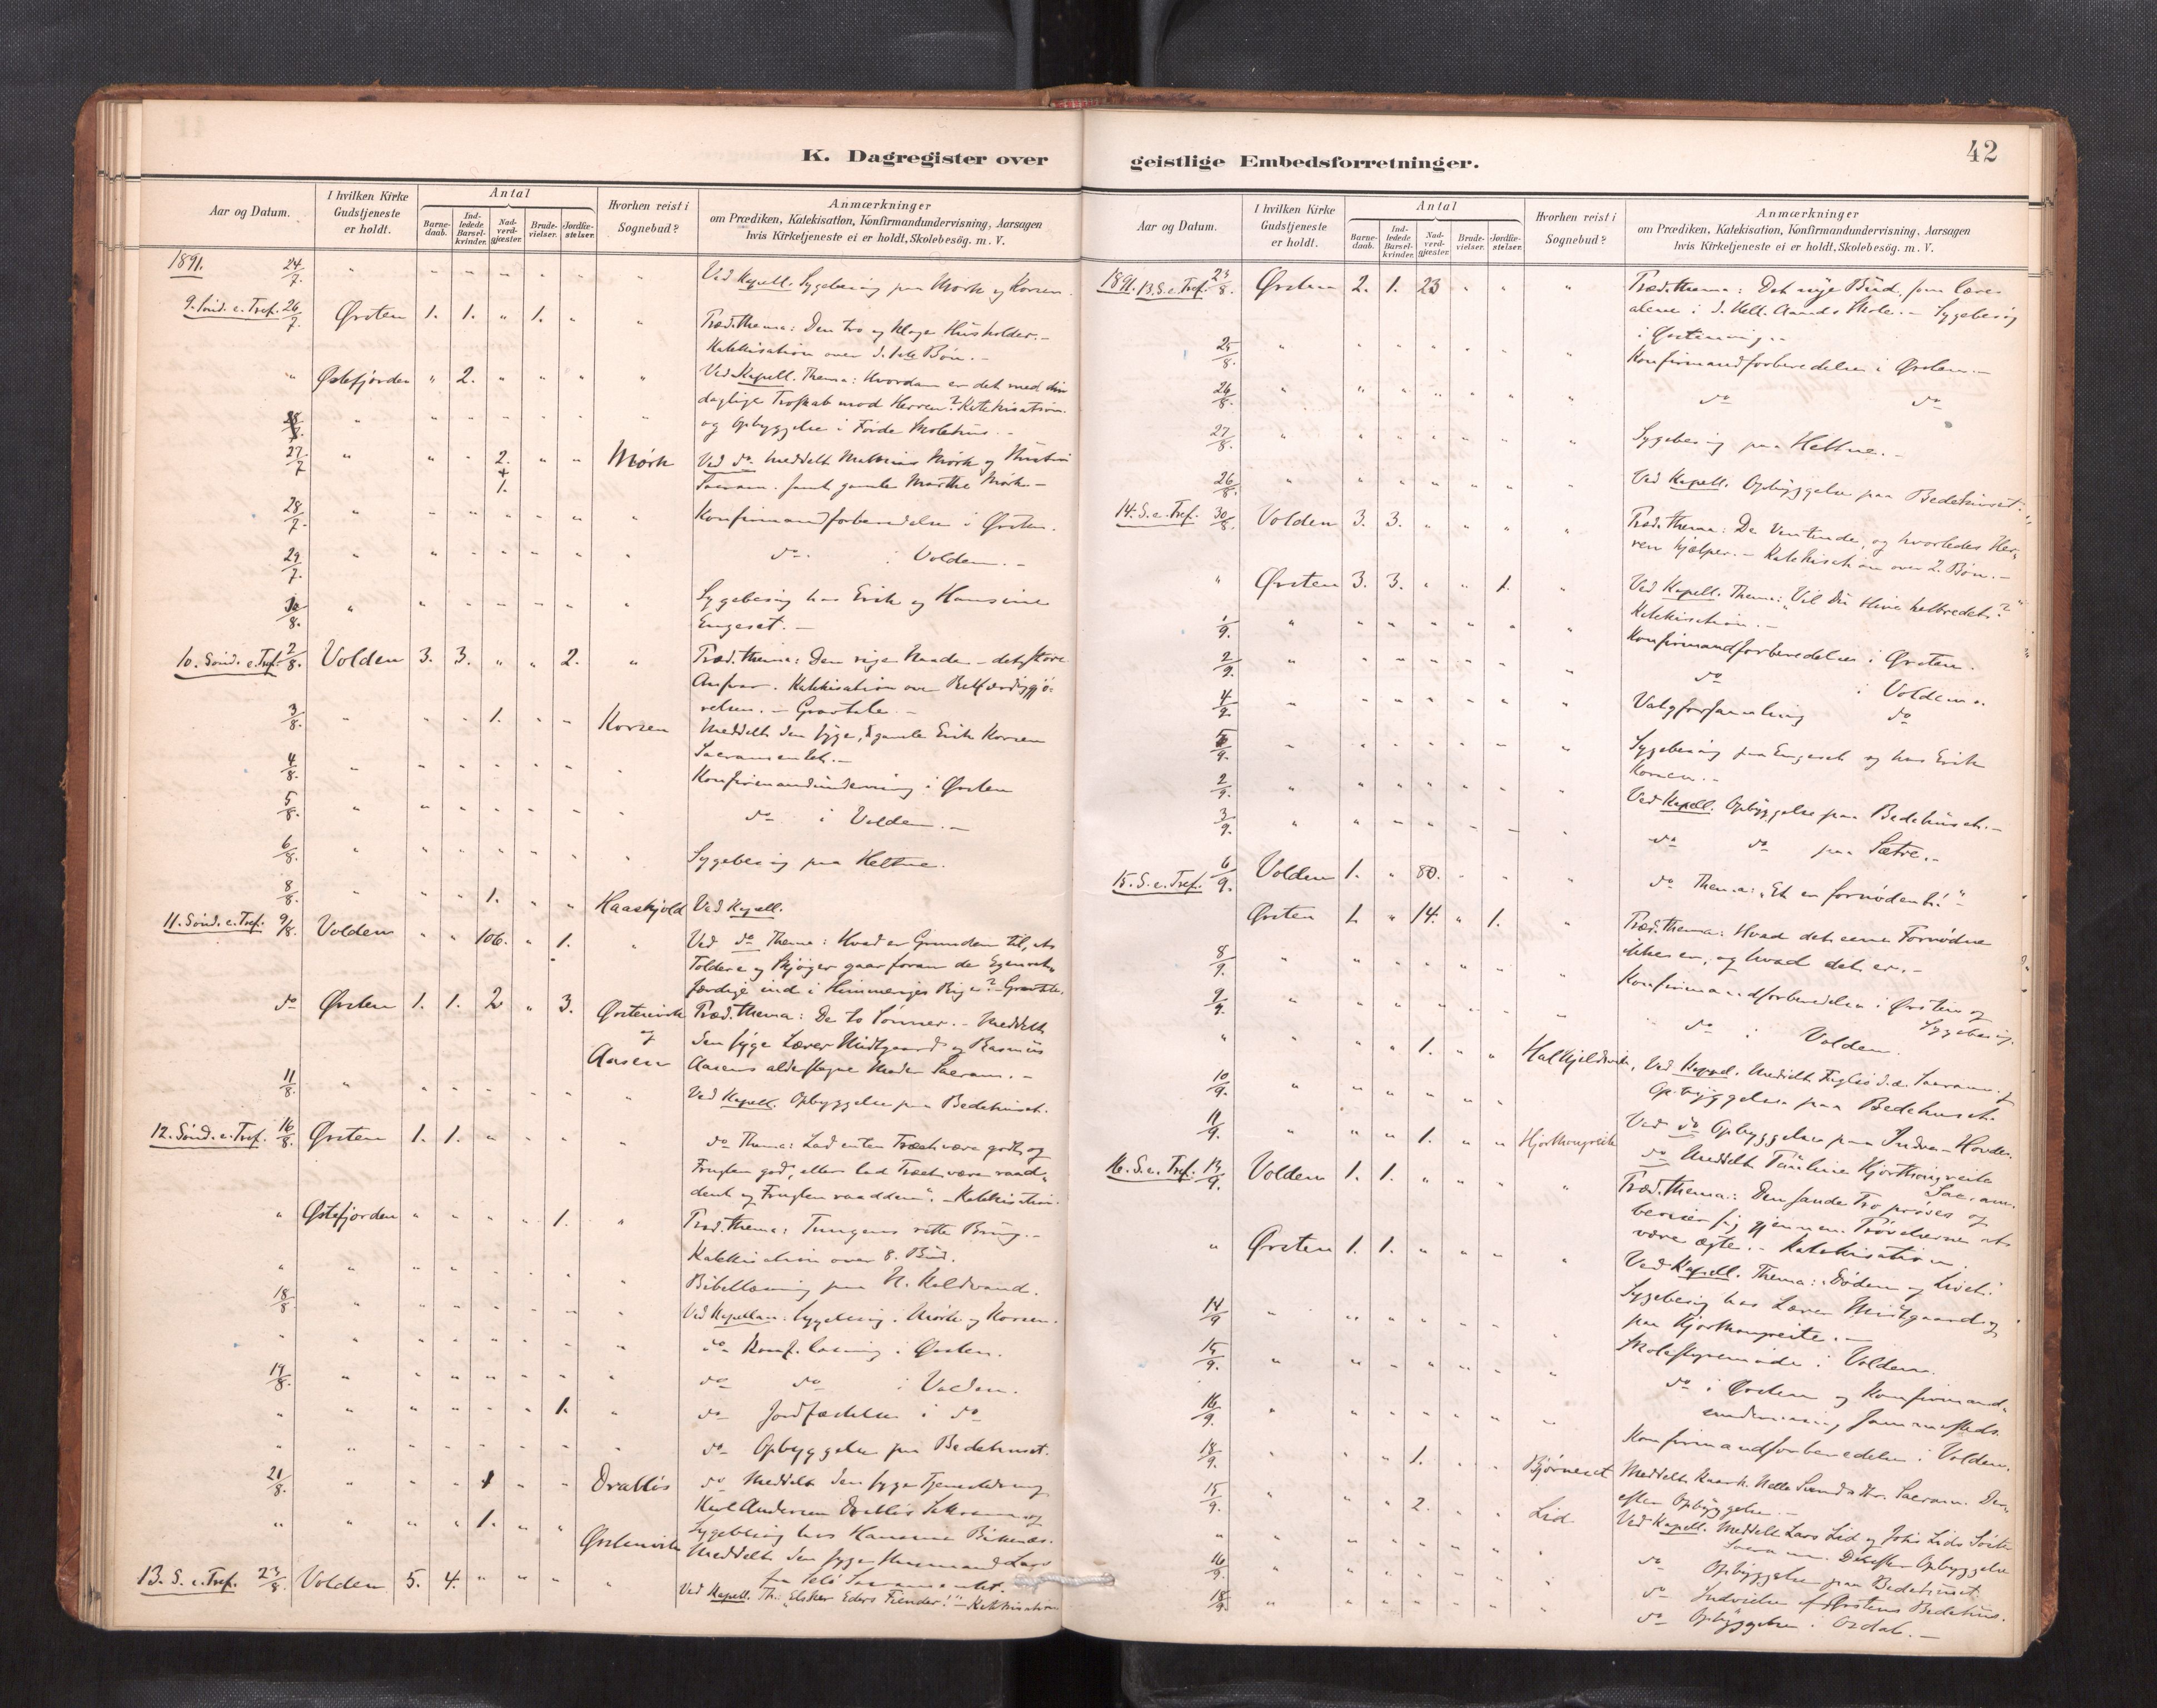 K. Dagregister over
Aar og Datum.
I hvilken Kirke
Gudstjeneste
er holdt.
Antal
Barne-
daab.
Ind-
ledede
Barsel-
kvinder.
Nad-
verd-
gjæster.
Brude-
vielser.
Jordfæ-
stelser.
Hvorhen reist i
Sognebud?
Anmærkninger
om Prædiken, Katekisation, Konfirmandundervisning, Aarsagen
hvis Kirketjeneste ei er holdt, Skolebesög. m. V.
1891. 24/7. " " " " " " " Ved Kapell. Sygebesøg paa Mork og Korsen.
9. Sønd. e. Tref. 26/7. Ørsten 1. 1. " 1. " " Præd. thema: Den tro og kloge Husholder. -
Katekisation over d. 1ste Bøn. -
" Østefjorden " 2. " " " " Ved Kapell. Thema: Hvordan er det med din
daglige Troskab mod Herren? Katekisation.
og Opbyggelse i Førde Skolehus. -
27/7 " " " 2. + 1. " " Mørk Ved do. Meddelt Mathias Mørk og Hustru
Sacram. samt gamle Marthe Mørk. -
28/7. " " " " " " " Konfirmandforberedelse i Ørsten.
29/7. " " " " " " " do. i Volden. -
" " " " " " " Sygebesøg hos Erik og Hansine
Engeset. -
10. Sønd. e. Tref. 2/8. Volden 3. 3. " " 2. " Præd. thema: Den rige Naade - det store
Ansvar. Katekisation over Retfærdiggjø-
relsen. - Gravtale. -
3/8. " " " 1. " " Korsen Meddelt den syge, gamle Erik Korsen
Sacramentet. -
4/8. " " " " " " " Konfirmandundervisning i Ørsten
5/8. " " " " " " " do i Volden. -
6/8. " " " " " " " Sygebesøg paa Heltne.
8/8. " " " 1. " " Haaskjold Ved Kapell.
11. Sønd. e. Tref. 9/8. Volden " " 106. " 1. " Ved do Thema: Hvad er Grunden til, at
Toldere og Skjøger gaar foran de Egenret-
færdige ind i Himmeriges Rige? Gravtale.
do Ørsten 1. 1. 2 " 3. Ørstenvik Præd. thema: De to Sønner. - Meddelt
og den syge Lærer Midtgaard og Rasmus
Aasen Aasens alderstegne Moder Sacram. -
11/8. " " " " " " " Ved Kapell. Opbyggelse paa Bedehuset.
12. Sønd. e. Tref. 16/8. Ørsten 1. 1. " " " " do Thema: Lad enten Træet være godt og
Frugten god, eller lad Træet være raad-
dent og Frugten raadden". - Katekisation.
" Østefjorden " " " " 1. " Præd. thema: Tungens rette Brug. -
Katekisation over 8. Bud.
" " " " " " " " Bibellæsning paa N. Kaldvand.
18/8 " " " " " " " Ved Kapellan: Sygebesøg. Mørk og Korsen.
" " " " " " " " do Konf. læsning i Ørsten.
19/8. " " " " " " " do do i Volden.
" " " " " " 1. " do Jordfæstelse i do
" " " " " " " " do Opbyggelse paa Bedehuset.
21/8. " " " 1 " " Drabløs do Meddelt den syge Tjenestedreng
Karl Andersen Drabløs Sakram. og
" " " " 1. " " Ørstenvik Sygebesøg hos Hansine
Meddelt den syge Huusmand Lars
Sacramentet.
13. S. e. Tref. 23/8. Volden 5. 4. " " " " Ved Kapell. Th: "Elsker Eders Fiender!" - Katekisation
geistlige Embedsforretninger.
42
Aar og Datum.
I hvilken Kirke
Gudstjeneste
er holdt.
Antal
Barne-
daab.
Ind-
ledede
Barsel-
kvinder.
Nad-
verd-
gjæster.
Brude-
vielser.
Jordfæ-
stelser.
Hvorhen reist i
Sognebud?
Anmærkninger
om Prædiken, Katekisation, Konfirmandundervisning, Aarsagen
hvis Kirketjeneste ei er holdt, Skolebesög. m. V.
1891. 13. S. e. Tref. 23/8. Ørsten 2. 1. 23 " " " Præd. thema: Det nye Bud, som læres
alene i d. Hell. Aands Skole. - Sygebesøg
i Ørstenvig. -
25/8. " " " " " " " Konfirmandforberedelse i Ørsten. -
26/8. " " " " " " " do do
27/8. " " " " " " " Sygebesøg paa Heltne. -
26/8. " " " " " " " Ved Kapell. Opbyggelse paa Bedehuset.
14. S. e. Tref. 30/8. Volden 3. 3. " " " " Præd. thema: De Ventende, og hvorledes Her-
ren hjælper. - Katekisation over 2. Bøn. -
" Ørsten 3. 3. " " 1. " Ved Kapell. Thema: "Vil Du blive helbredet?"
Katekisation. -
1/9. " " " " " " " Konfirmandforberedelse i Ørsten.
2/9. " " " " " " " do i Volden.
4/9. " " " " " " " Valgforsamling do
" " " " " " " Sygebesøg paa Engeset og hos Erik
Korsen. -
2/9. " " " " " " " Ved Kapell. Opbyggelse paa Bedehuset. -
3/9. " " " " " " " do do paa Sætre. -
15. S. e. Tref. 6/9. Volden 1. " 80. " " " do Thema: "Et er fornødent!" -
Ørsten 1. " 14. " 1. " Præd. thema: Hvad det ene Fornødne
ikke er, og hvad det er. -
8/9. " " " " " " " Konfirmandforberedelse i Ørsten og
Sygebesøg.
9/9. " " " " " " " do i Volden.
" " " " 1. " " Halkjeldsvik, Ved Kappel. Meddelt Sacram. og
Opbyggelse paa Bedehuset.
10/9. " " " " " " " Ved do Opbyggelse paa Indre-Hovden.
11/9. " " " 1. " " Hjorthongreite do Meddelt Pauline Hjorthongreite
Sacram.
16. S. e. Tref. 13/9. Volden 1. 1. " " " " Præd. thema: Den sande Tro prøves og
beviser sig gjennem Prøvelserne at
være ægte. - Katekisation.
" Ørsten 1. 1. " " " " Ved Kapell. Thema: Døden og Livet.
14/9 " " " " " " " Sygebesøg hos Lærer Midtgaard og
paa Hjorthongreite. -
15/9. " " " " " " " Skolestyremøde i Volden.
do i Ørsten og Konfirmand-
undervisning sammesteds.
16/9. " " " " " " " Konfirmandforberedelse i Volden.
18/9. " " " 1. " " Bjørneset Meddelt Sacram. Der-
efter Opbyggelse. -
15/9. " " " 2. " " Lid. Ved Kapell. Meddelt Lars Lid og Lids
Sacram. Derefter Opbyggelse
" " " " " " " " do Opbyggelse paa Bedehuset.
16/9. " " " " " " " do Indvielse af Ørstens Bedehus.
18/9. " " " " " " " do Opbyggelse i Osdal. -